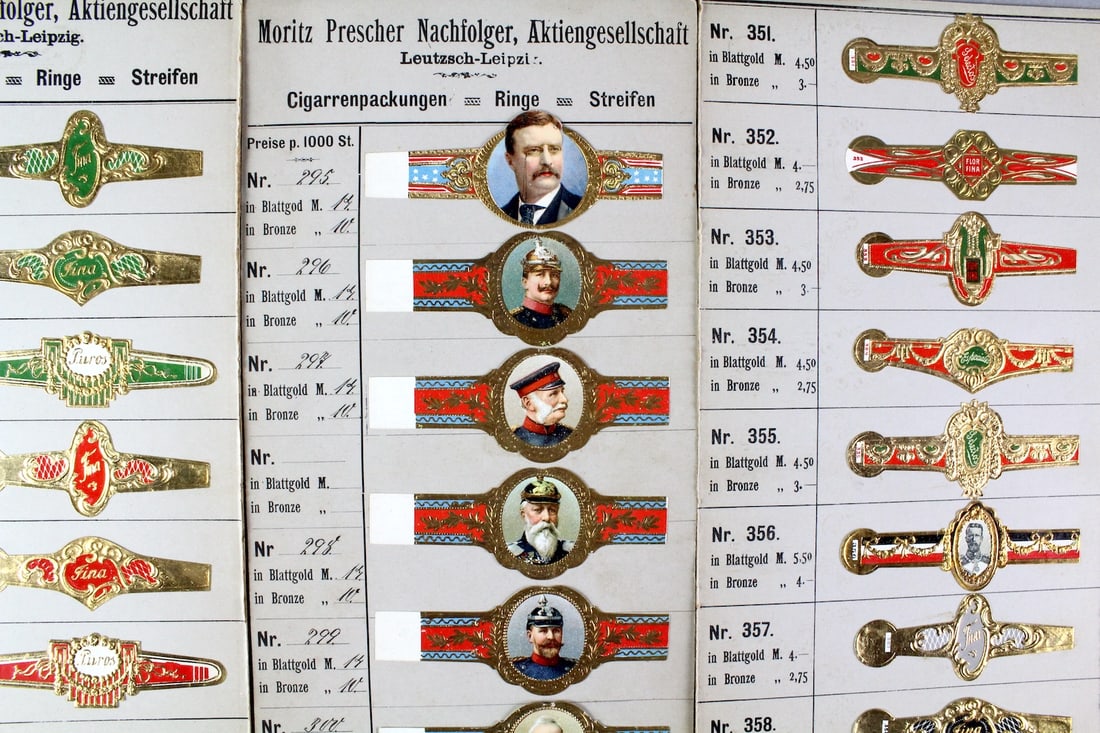 folger, Aktiengesellschaft
ch-Leipzig.
Ringe
Streifen
Fina
Fina
Puros
Fina
Fina
Puros
Moritz Prescher Nachfolger, Aktiengesellschaft
Leutzsch-Leipzig.
Cigarrenpackungen Ringe Streifen
Preise p. 1000 St.
Nr. 295.
in Blattgod M. 17.
in Bronze „ 10.
Nr. 296
in Blattgold M. 17.
in Bronze „ 10.
Nr. 297
in Blattgold M. 17.
in Bronze „ 10.
Nr.
in Blattgold M.
in Bronze „
Nr 298
in Blattgold M. 17.
in Bronze „ 10.
Nr. 299
in Blattgold M. 17
in Bronze „ 10.
Nr. 300
Nr. 351.
in Blattgold M. 4,50
in Bronze „ 3.—
Nr. 352.
in Blattgold M. 4.—
in Bronze „ 2,75
352
FLOR
FINA
Nr. 353.
in Blattgold M. 4,50
in Bronze „ 3.
Nr. 354.
in Blattgold M. 4,50
in Bronze „ 2,75
Especial
Nr. 355.
in Blattgold M. 4.50
in Bronze „ 3.—
Nr. 356.
in Blattgold M. 5,50
in Bronze „ 4.—
Nr. 357.
in Blattgold M. 4.—
in Bronze „ 2,75
Fina
Nr. 358.
Fina